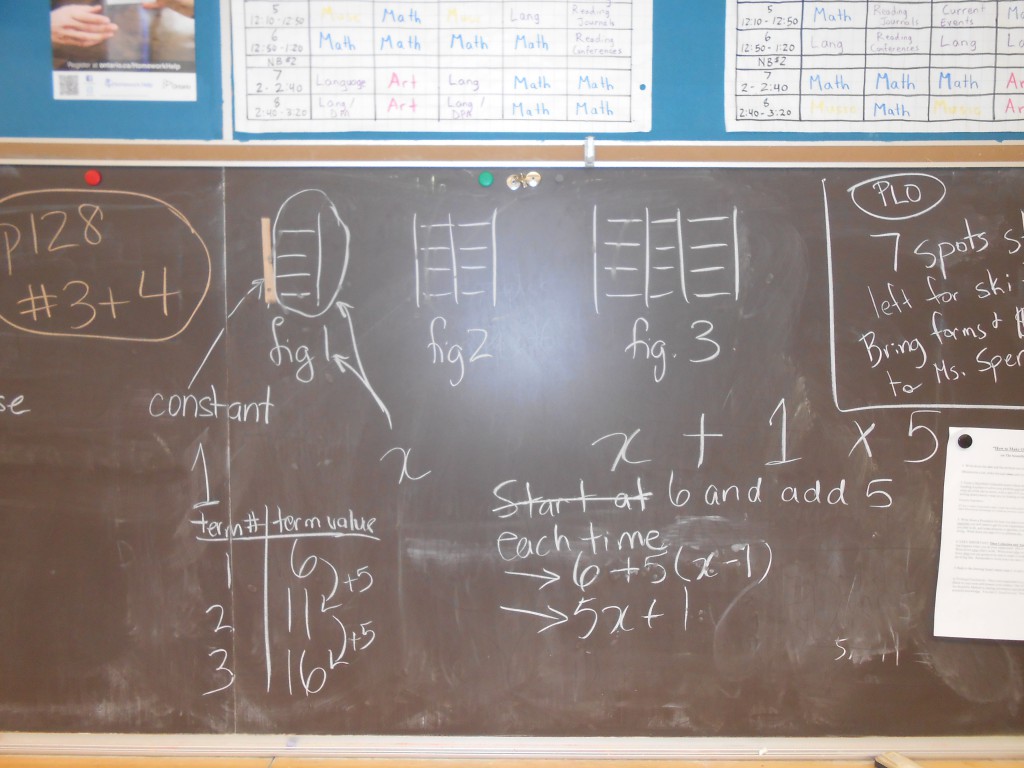 Register at ontario.ca/homeworkhelp
5 12:10-12:50 Music Math Music Lang Reading Journals
6 12:50-1:20 Math Math Math Math Reading Conferences
NB#2
7 2-2:40 Language Art Lang Math Math
8 2:40-3:20 Lang/ DPA Art Lang/ DPA Math Math
5 12:10-12:50 Math Reading Journals Current Events
6 12:50-1:20 Lang Reading Conferences Lang
NB#2
7 2-2:40 Math Math Math
8 2:40-3:20 Math
p128
#3+4
fig 1
fig 2
fig. 3
constant
1
x
term# term value
1 6
+5
2 11
+5
3 16
x + 1 x 5
Start at 6 and add 5
each time
→ 6 +5(x-1)
→ 5x+1
PLO
7 spots
left for ski
Bring forms +
to Ms.